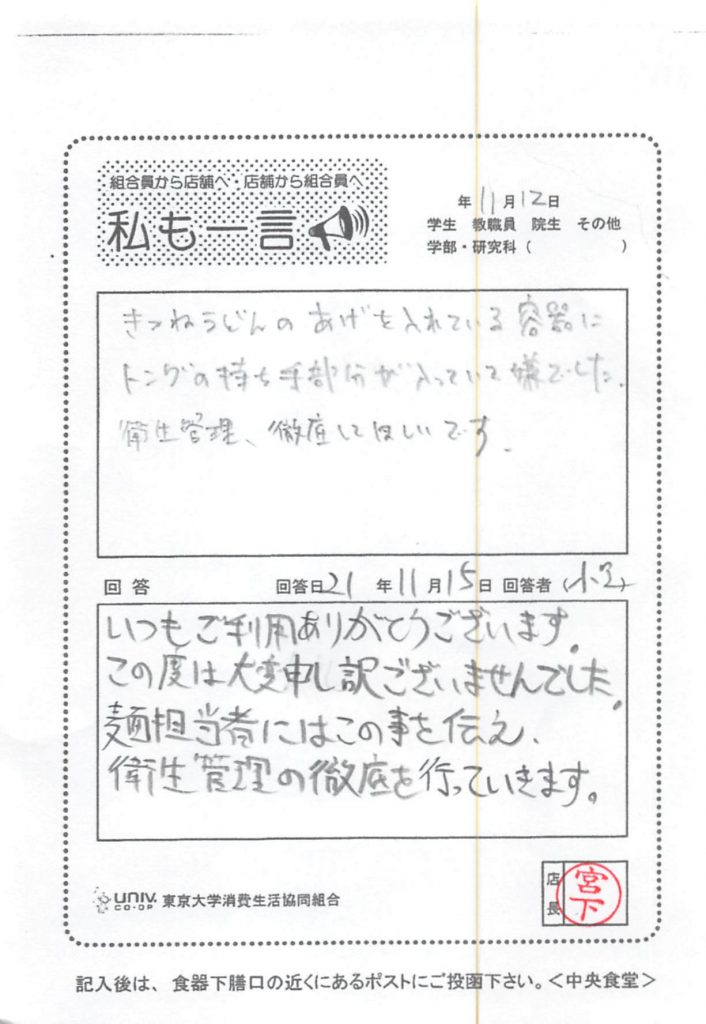 組合員から店舗へ・店舗から組合員へ
私も一言
年 11月12日
学生 教職員 院生 その他
学部・研究科( )
きつねうどんのあげを入れている容器に
トングの持ち手部分が入っていて嫌でした.
衛生管理、徹底してほしいです.
回答 回答日21年11月15日 回答者( )
いつもご利用ありがとうございます.
この度は大変申し訳ございませんでした.
麺担当者にはこの事を伝え、
衛生管理の徹底を行っていきます。
UNIV. CO-OP 東京大学消費生活協同組合
店長 宮下
記入後は、食器下膳口の近くにあるポストにご投函下さい。<中央食堂>